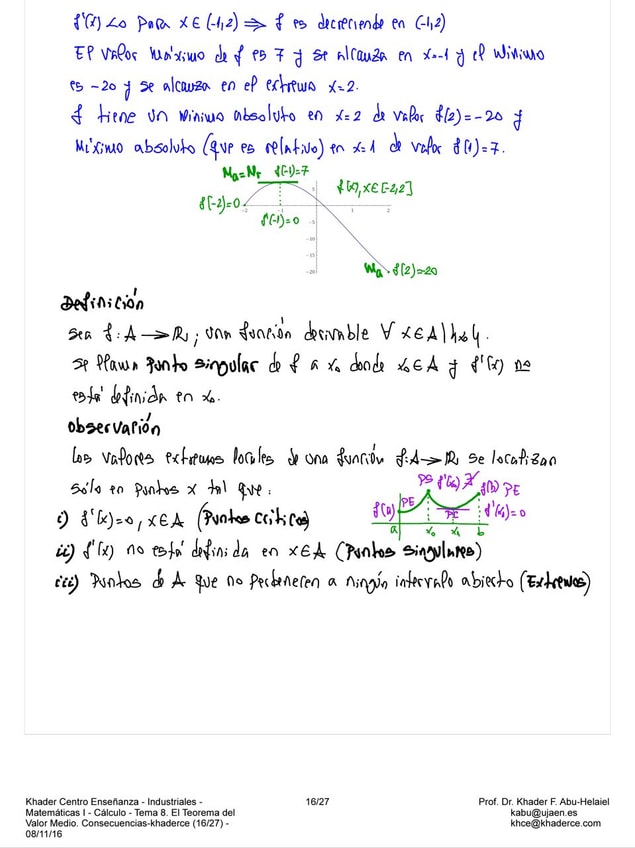 f'(x) < 0 para x ∈ (-1,2) ⟹ f es decreciende en (-1,2)
El valor máximo de f es 7 y se alcanza en x=-1 y el mínimo
es -20 y se alcanza en el extremo x=2.
f tiene un mínimo absoluto en x=2 de valor f(2)=-20 y
Máximo absoluto (que es relativo) en x=1 de valor f(1)=7.
Ma=Mr f(-1)=7
f(x), x∈[-2,2]
f(-2)=0
f'(-1)=0
-2 -1 1 2
5
-5
-10
-15
-20
ma f(2)=-20
Definición
Sea f: A → ℝ; una función derivable ∀ x∈A\{x₀}.
Se llama punto singular de f a x₀ donde x₀∈A y f'(x) no
está definida en x₀.
Observación
Los valores extremos locales de una función f: A → ℝ se localizan
sólo en puntos x tal que:
i) f'(x)=0, x∈A (Puntos críticos)
ii) f'(x) no está definida en x∈A (Puntos singulares)
iii) Puntos de A que no pertenecen a ningún intervalo abierto (Extremos)
PS f'(x₀) ∄
f(a) PE
f(b) PE
PC
f'(x₁)=0
a x₀ x₁ b
Khader Centro Enseñanza - Industriales -
Matemáticas I - Cálculo - Tema 8. El Teorema del
Valor Medio. Consecuencias-khaderce (16/27) -
08/11/16
16/27
Prof. Dr. Khader F. Abu-Helaiel
kabu@ujaen.es
khce@khaderce.com